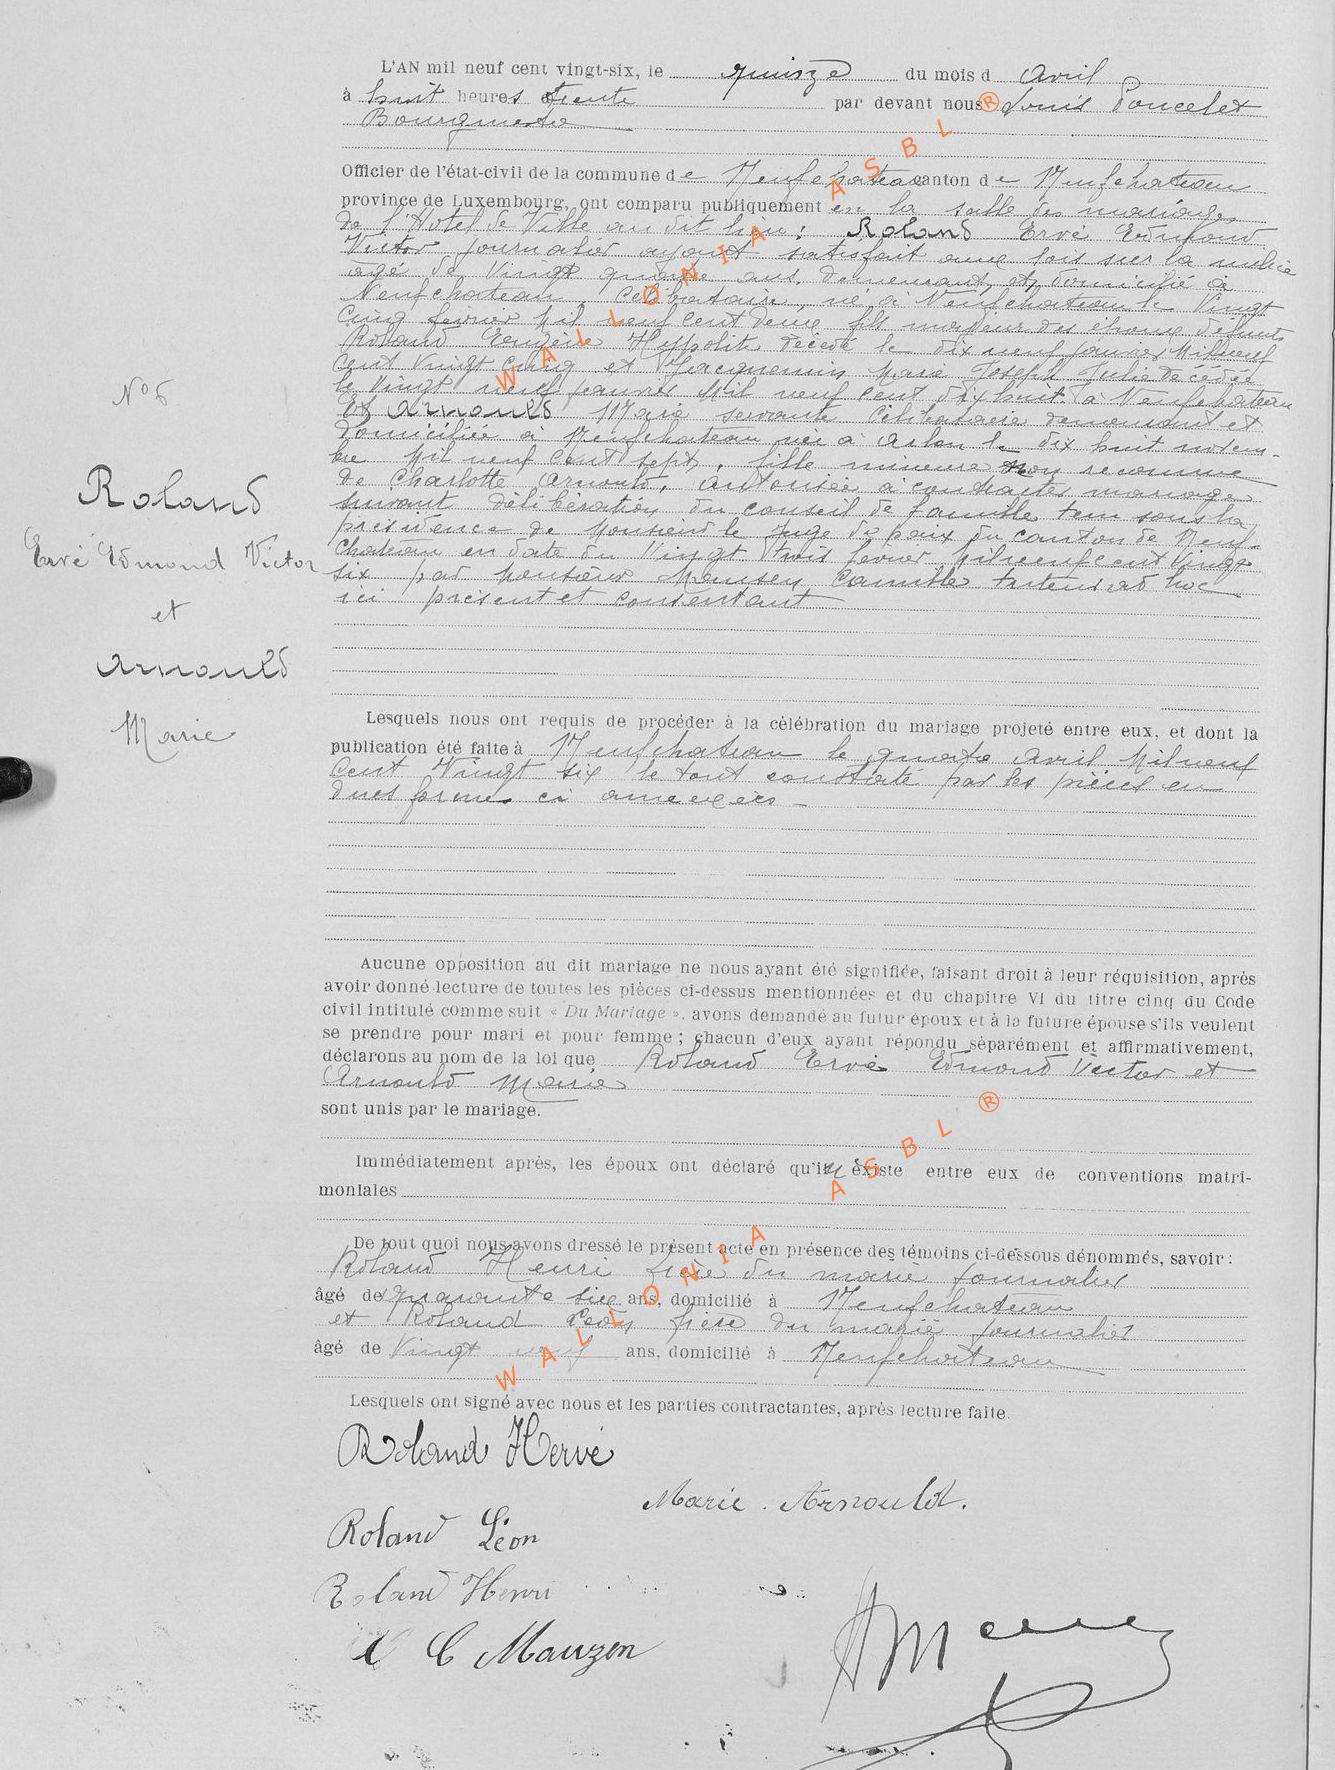 L'AN mil neuf cent vingt-six, le quinze du mois d Avril
à huit heures trente par devant nous Louis Poncelet
Bourgmestre
Officier de l'état-civil de la commune de Neufchateau canton de Neufchateau
province de Luxembourg, ont comparu publiquement en la salle des mariages
de l'Hotel de Ville au dit lieu : Roland Ervé Edmond
Victor journalier ayant satisfait aux lois sur la milice
âgé de vingt quatre ans, demeurant et domicilié à
Neufchateau, célibataire, né à Neufchateau le Vingt
cinq fevrier Mil neuf cent deux fils majeur des époux défunts
Roland Eugène Hyppolite décédé le dix neuf janvier Mil neuf
cent vingt cinq et Jacquemin Marie Joseph Julie décédée
le Vingt neuf janvier Mil neuf cent dix huit à Neufchateau
Et Arnould Marie servante célibataire demeurant et
domiciliée à Neufchateau née à Arlon le dix huit novem-
bre Mil neuf cent sept, fille mineure non reconnue
de Charlotte Arnould, autorisée à contracter mariage
suivant délibération du conseil de famille tenu sous la
présidence de Monsieur le Juge de paix du canton de Neuf-
chateau en date du Vingt trois fevrier Mil neuf cent Vingt
six par Monsieur Camille tuteur ad hoc
ici présent et consentant
N° 6
Roland
Ervé Edmond Victor
et
Arnould
Marie
Lesquels nous ont requis de procéder à la célébration du mariage projeté entre eux, et dont la
publication été faite à Neufchateau le quatre Avril Mil neuf
cent Vingt six le tout constaté par les pièces en
dues formes ci annexées
Aucune opposition au dit mariage ne nous ayant été signifiée, faisant droit à leur réquisition, après
avoir donné lecture de toutes les pièces ci-dessus mentionnées et du chapitre VI du titre cinq du Code
civil intitulé comme suit « Du Mariage », avons demandé au futur époux et à la future épouse s'ils veulent
se prendre pour mari et pour femme ; chacun d'eux ayant répondu séparément et affirmativement,
déclarons au nom de la loi que Roland Ervé Edmond Victor et
Arnould Marie
sont unis par le mariage.
Immédiatement après, les époux ont déclaré qu'il n'existe entre eux de conventions matri-
moniales
De tout quoi nous avons dressé le présent acte en présence des témoins ci-dessous dénommés, savoir :
Roland Henri frère du marié journalier
âgé de quarante six ans, domicilié à Neufchateau
et Roland Léon frère du marié journalier
âgé de Vingt neuf ans, domicilié à Neufchateau
Lesquels ont signé avec nous et les parties contractantes, après lecture faite.
Roland Hervé
Marie. Arnould.
Roland Léon
Roland Henri
C Mauzen
WALLONIA ASBL ®
WALLONIA ASBL ®